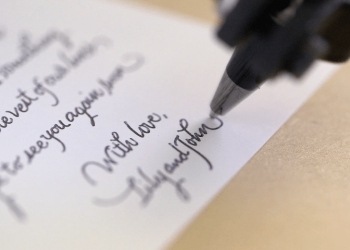 the rest of our lives,
to see you again soon
With love,
Lily and John